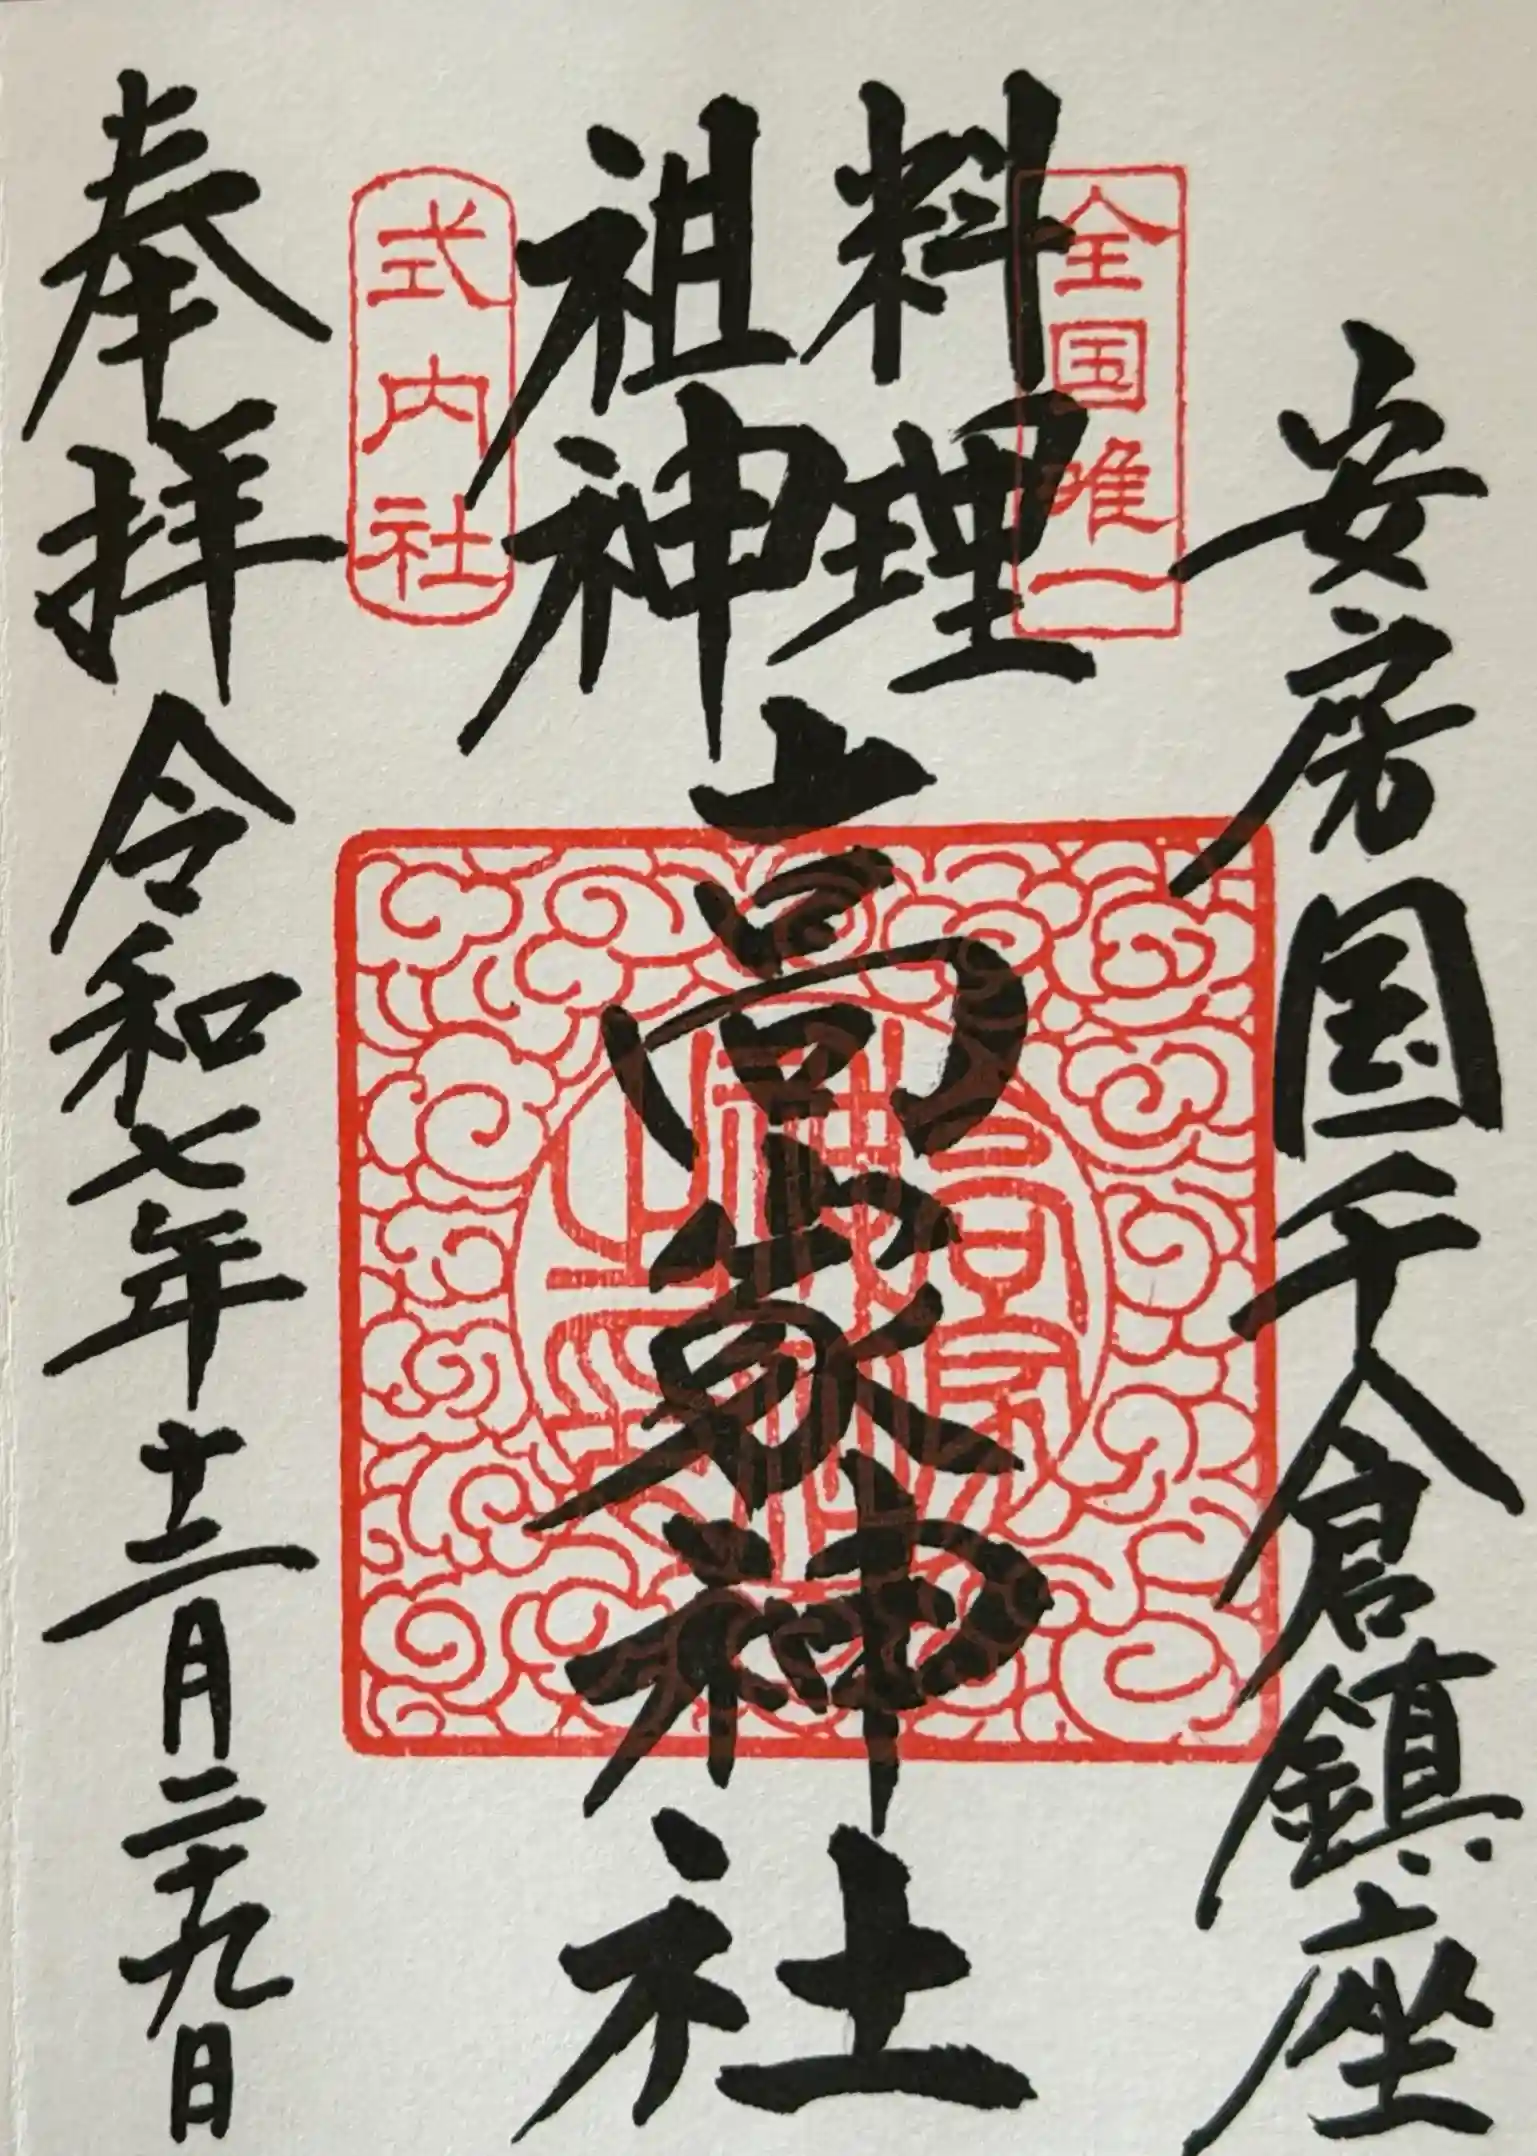 安房国千倉鎮座
全国唯一
料理
祖神
高家神社
式内社
奉拝
令和七年十二月二十九日